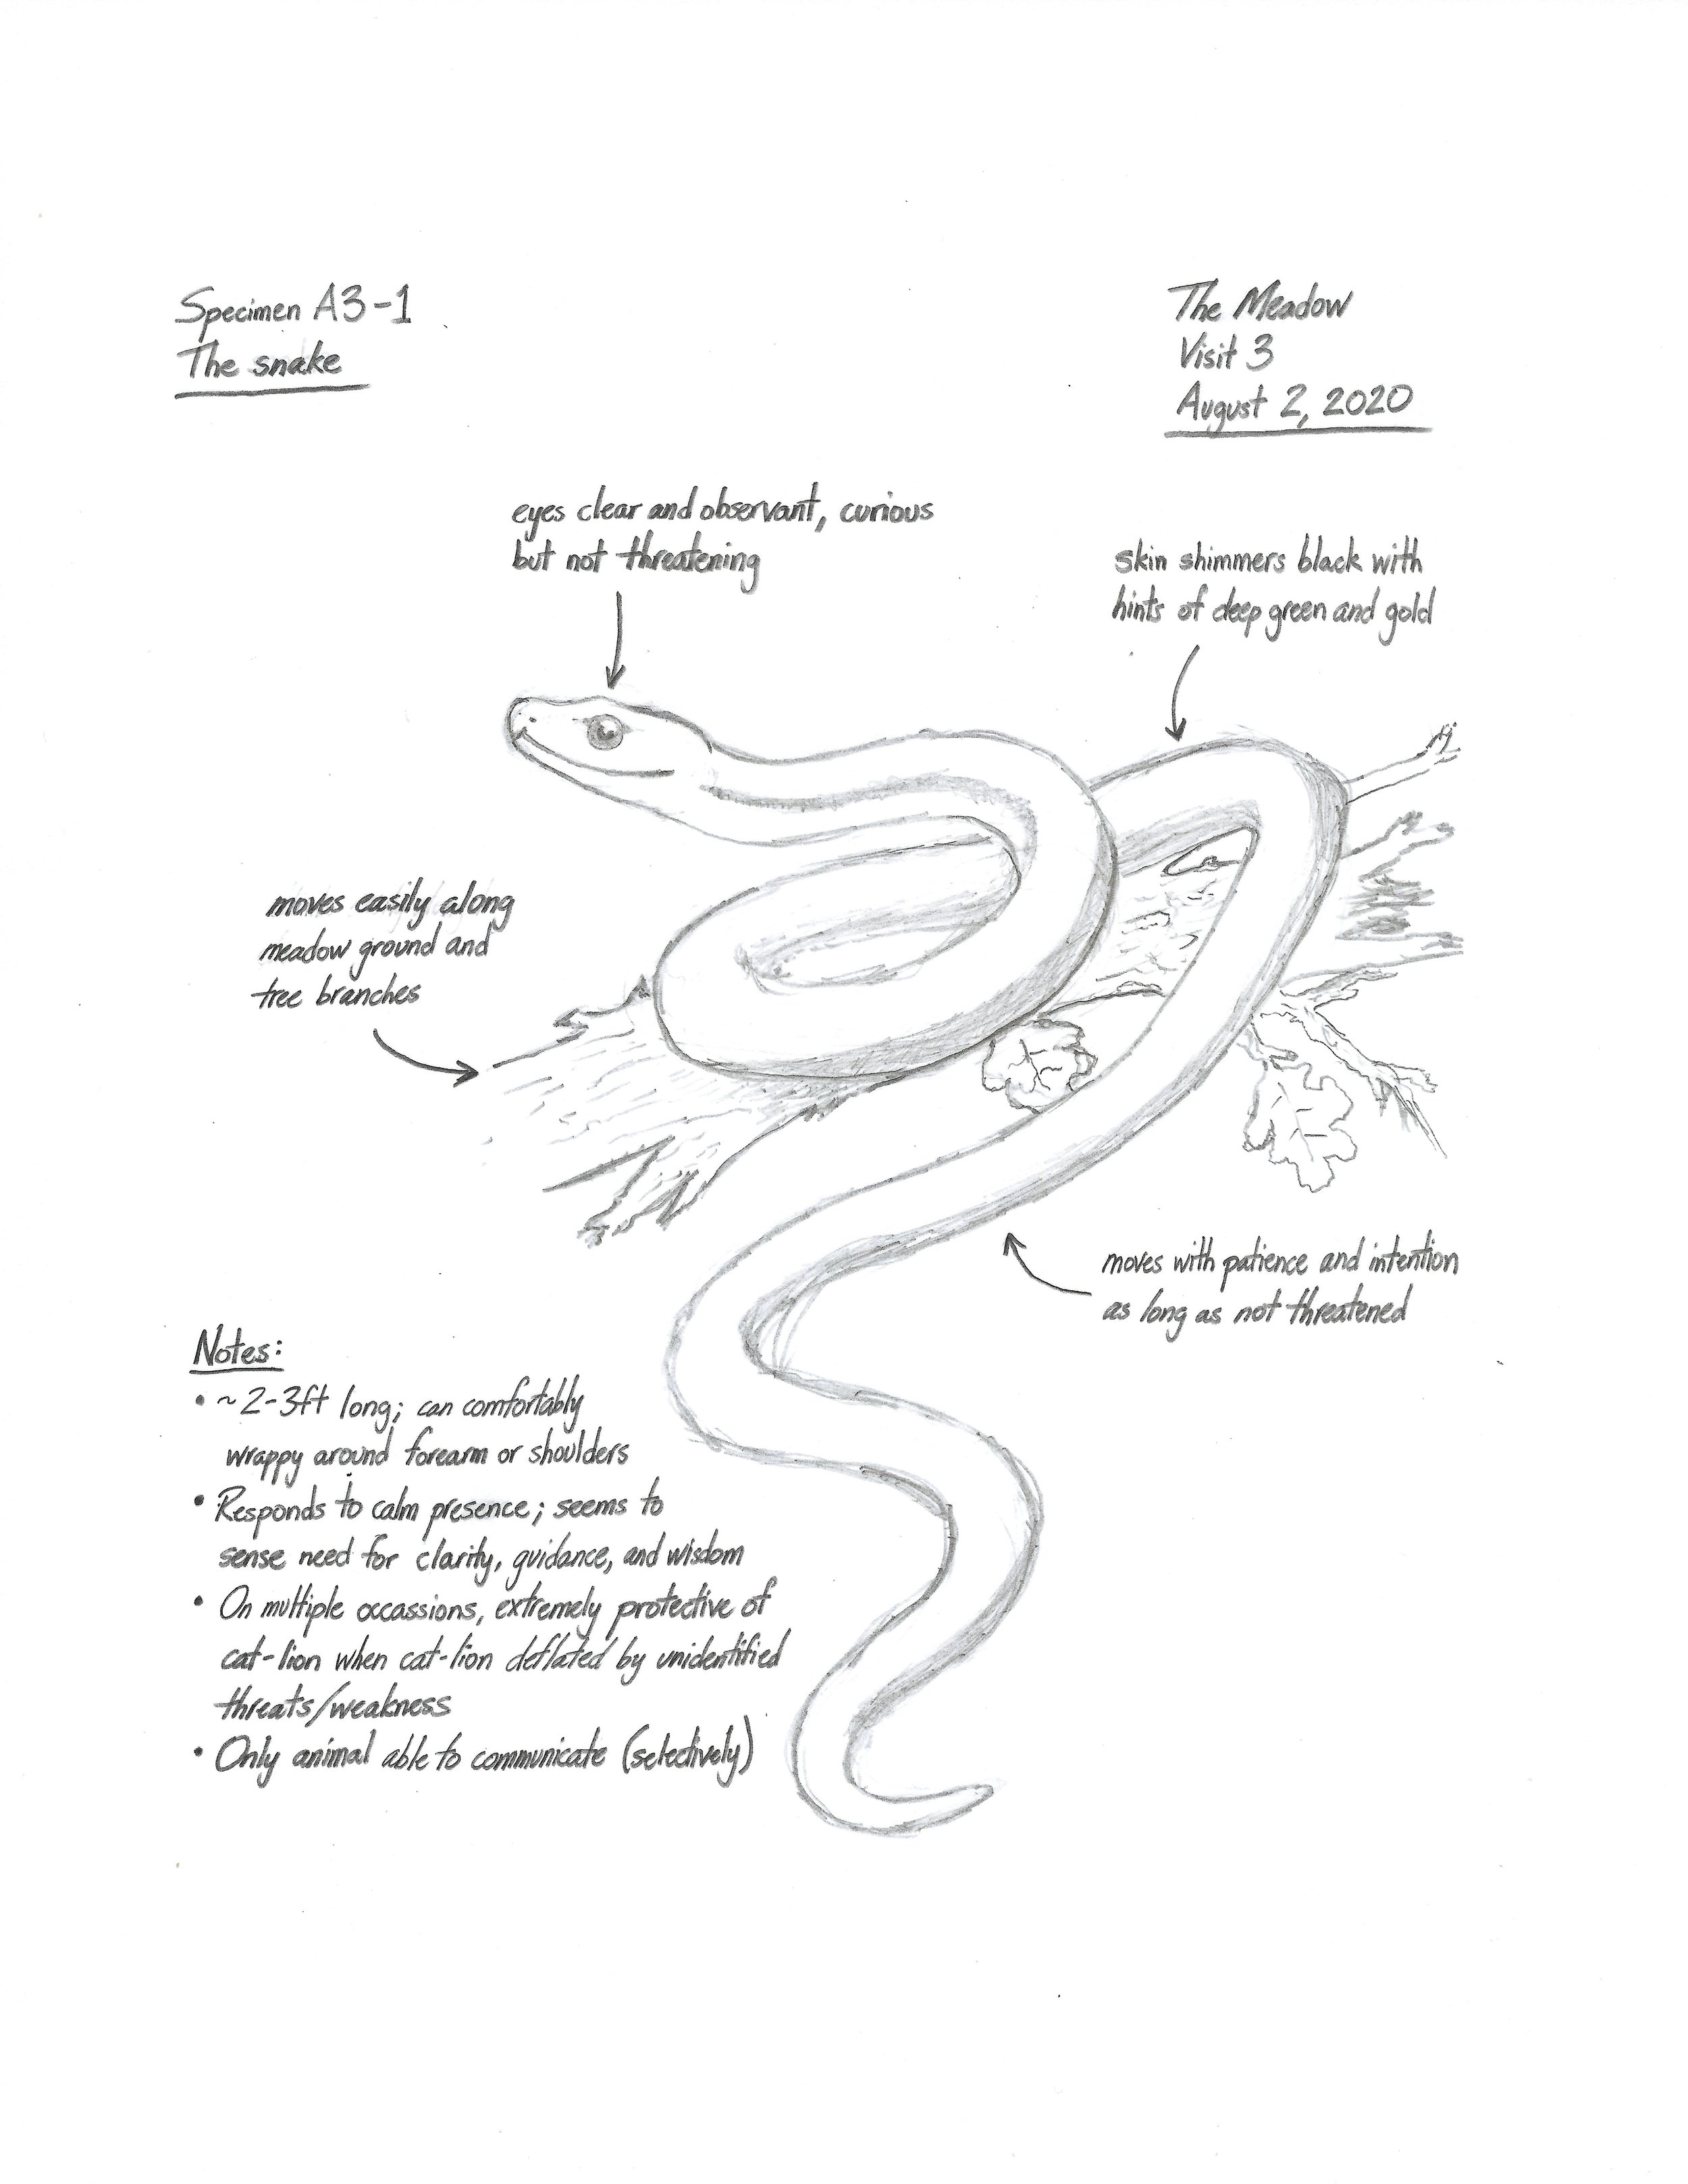 Specimen A3-1
The snake
The Meadow
Visit 3
August 2, 2020
eyes clear and observant, curious
but not threatening
skin shimmers black with
hints of deep green and gold
moves easily along
meadow ground and
tree branches
moves with patience and intention
as long as not threatened
Notes:
• ~2-3ft long; can comfortably
wrappy around forearm or shoulders
• Responds to calm presence; seems to
sense need for clarity, guidance, and wisdom
• On multiple occassions, extremely protective of
cat-lion when cat-lion deflated by unidentified
threats/weakness
• Only animal able to communicate (selectively)